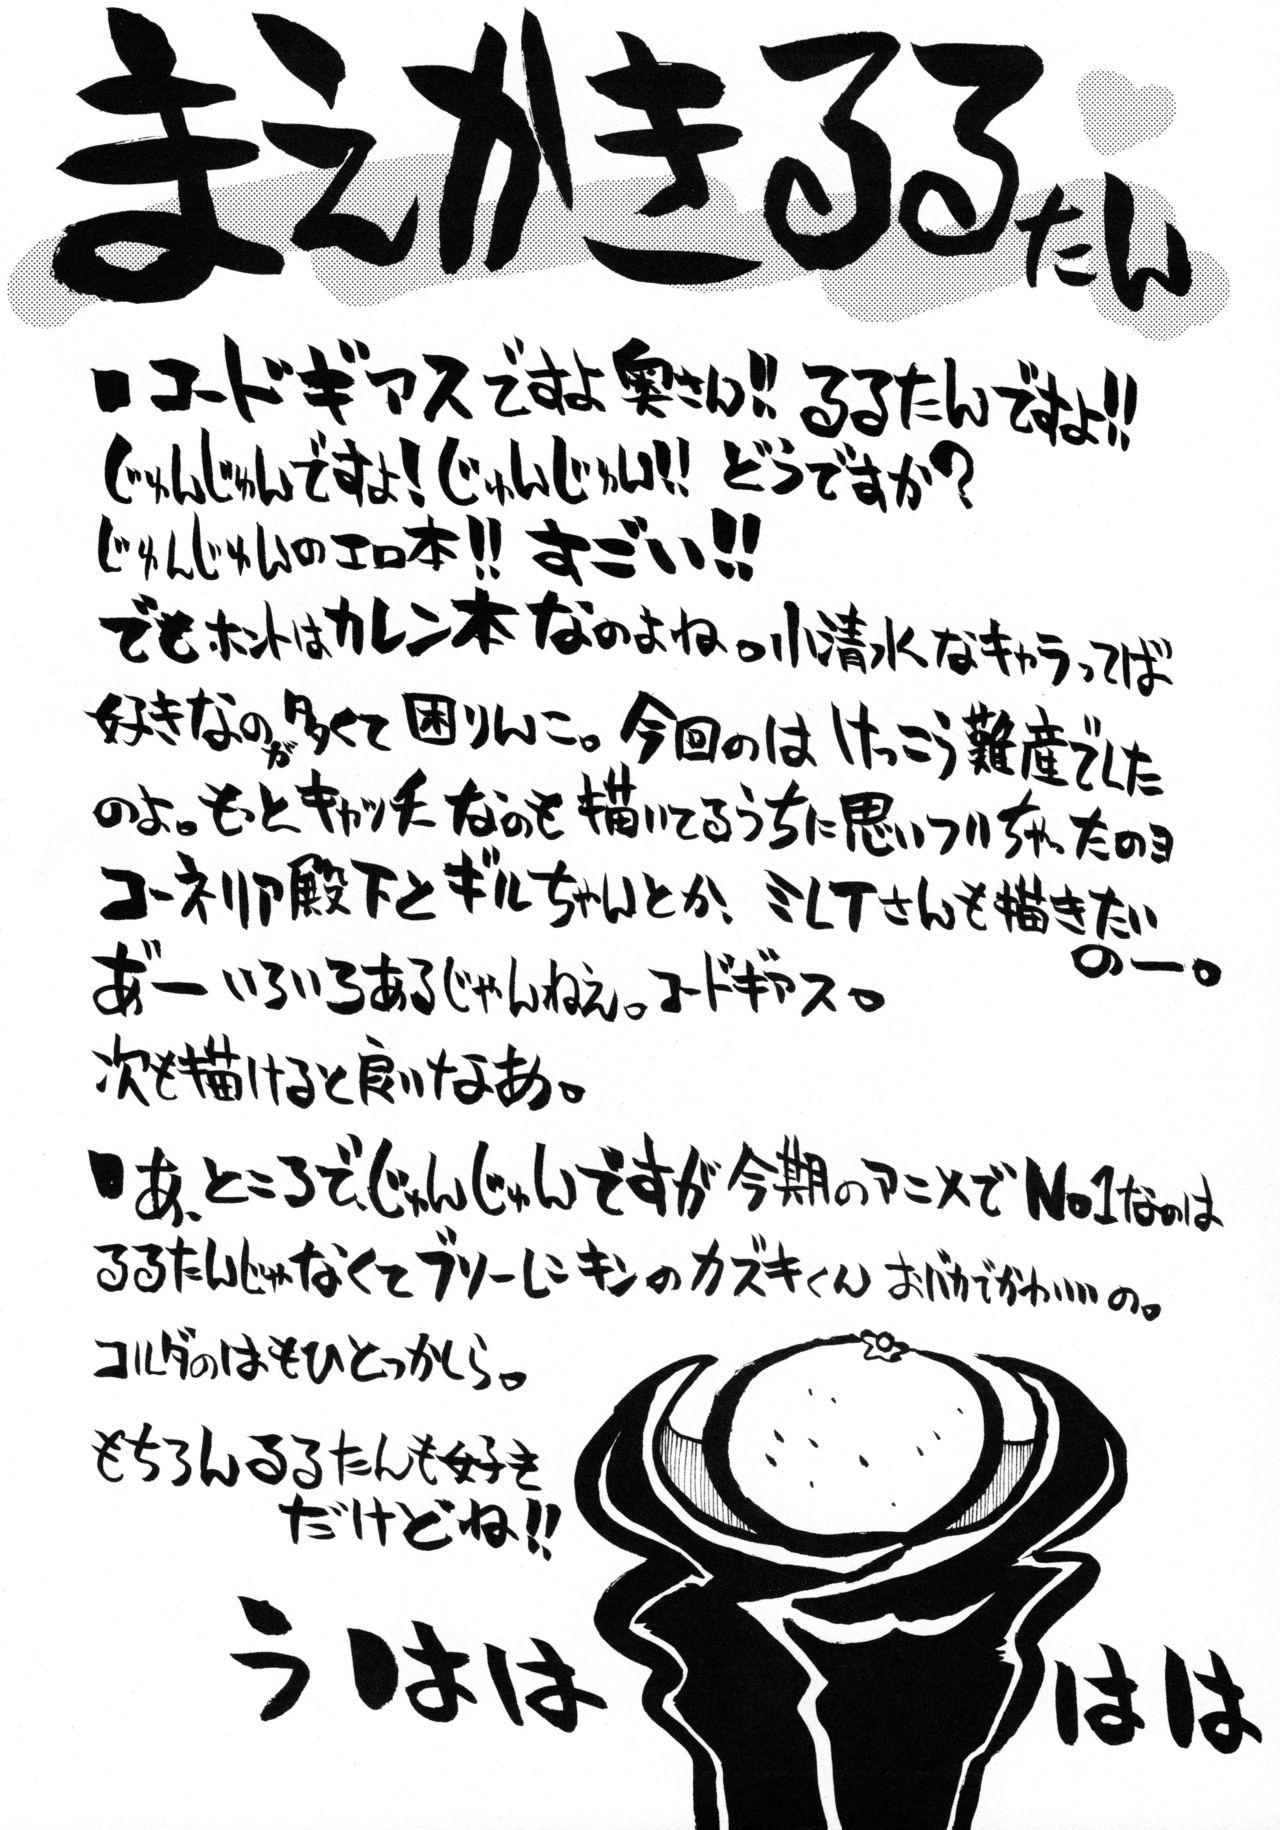 まえかきるるたん
■コードギアスですよ奥さん!!るるたんですよ!!
じゅんじゅんですよ!じゅんじゅん!!どうですか?
じゅんじゅんのエロ本!!すごい!!
でもホントはカレン本なのよね。小清水なキャラってば
好きなのが多くて困りんこ。今回のはけっこう難産でした
のよ。もっとキャッチなのも描いてるうちに思いついちゃったのヨ
コーネリア殿下とギルちゃんとか、ミレイさんも描きたい
のー。
あ゛ーいろいろあるじゃんねえ。コードギアス。
次も描けると良いなあ。
■あ、ところで、じゅんじゅんですが今期のアニメでNo.1なのは
るるたんじゃなくてブリーレンキンのカズキくん おバカでかわいいの。
コルダのはもひとつかしら。
もちろんるるたんも好き
だけどね!!
うはは
はは